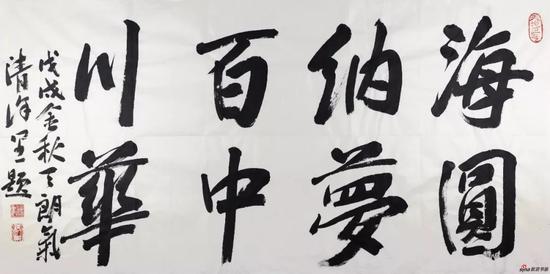 海納百川
圓夢中華
戊戌金秋天朗氣
清徐里題